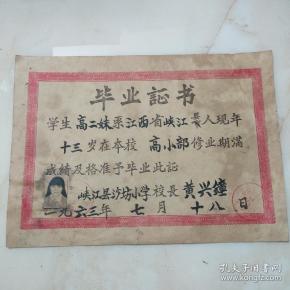 毕业証书
学生高二妹系江西省峡江县人现年
十三岁在本校高小部修业期满
成绩及格准予毕业此证
峡江县沙坊小学校長黄兴鐘
一九六三年七月十八日
孔夫子旧书网